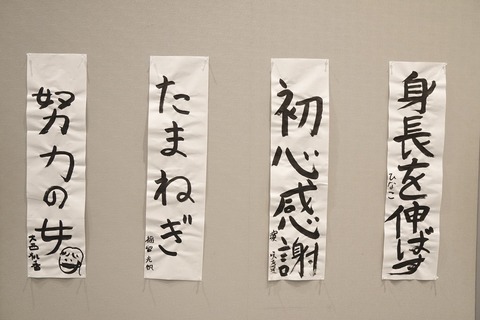 身長を伸ばす
ひなこ
初心感謝
たまねぎ
福留 光帆
努力の女
大西